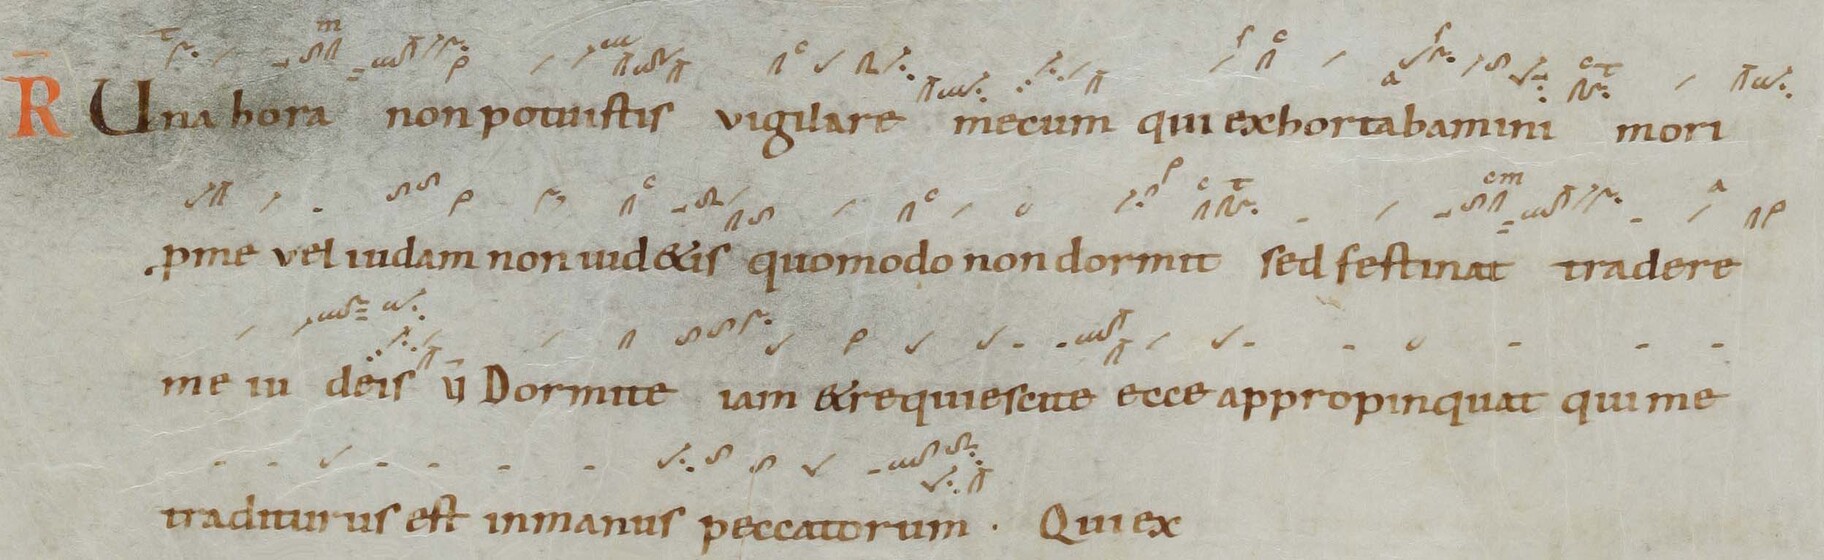 R Una hora non potuistis vigilare mecum qui exhortabamini mori
pme vel iudam non uid&is quomodo non dormit sed festinat tradere
me iu deis ṽ Dormite iam &requiescite ecce appropinquat qui me
traditurus est inmanus peccatorum · Qui ex